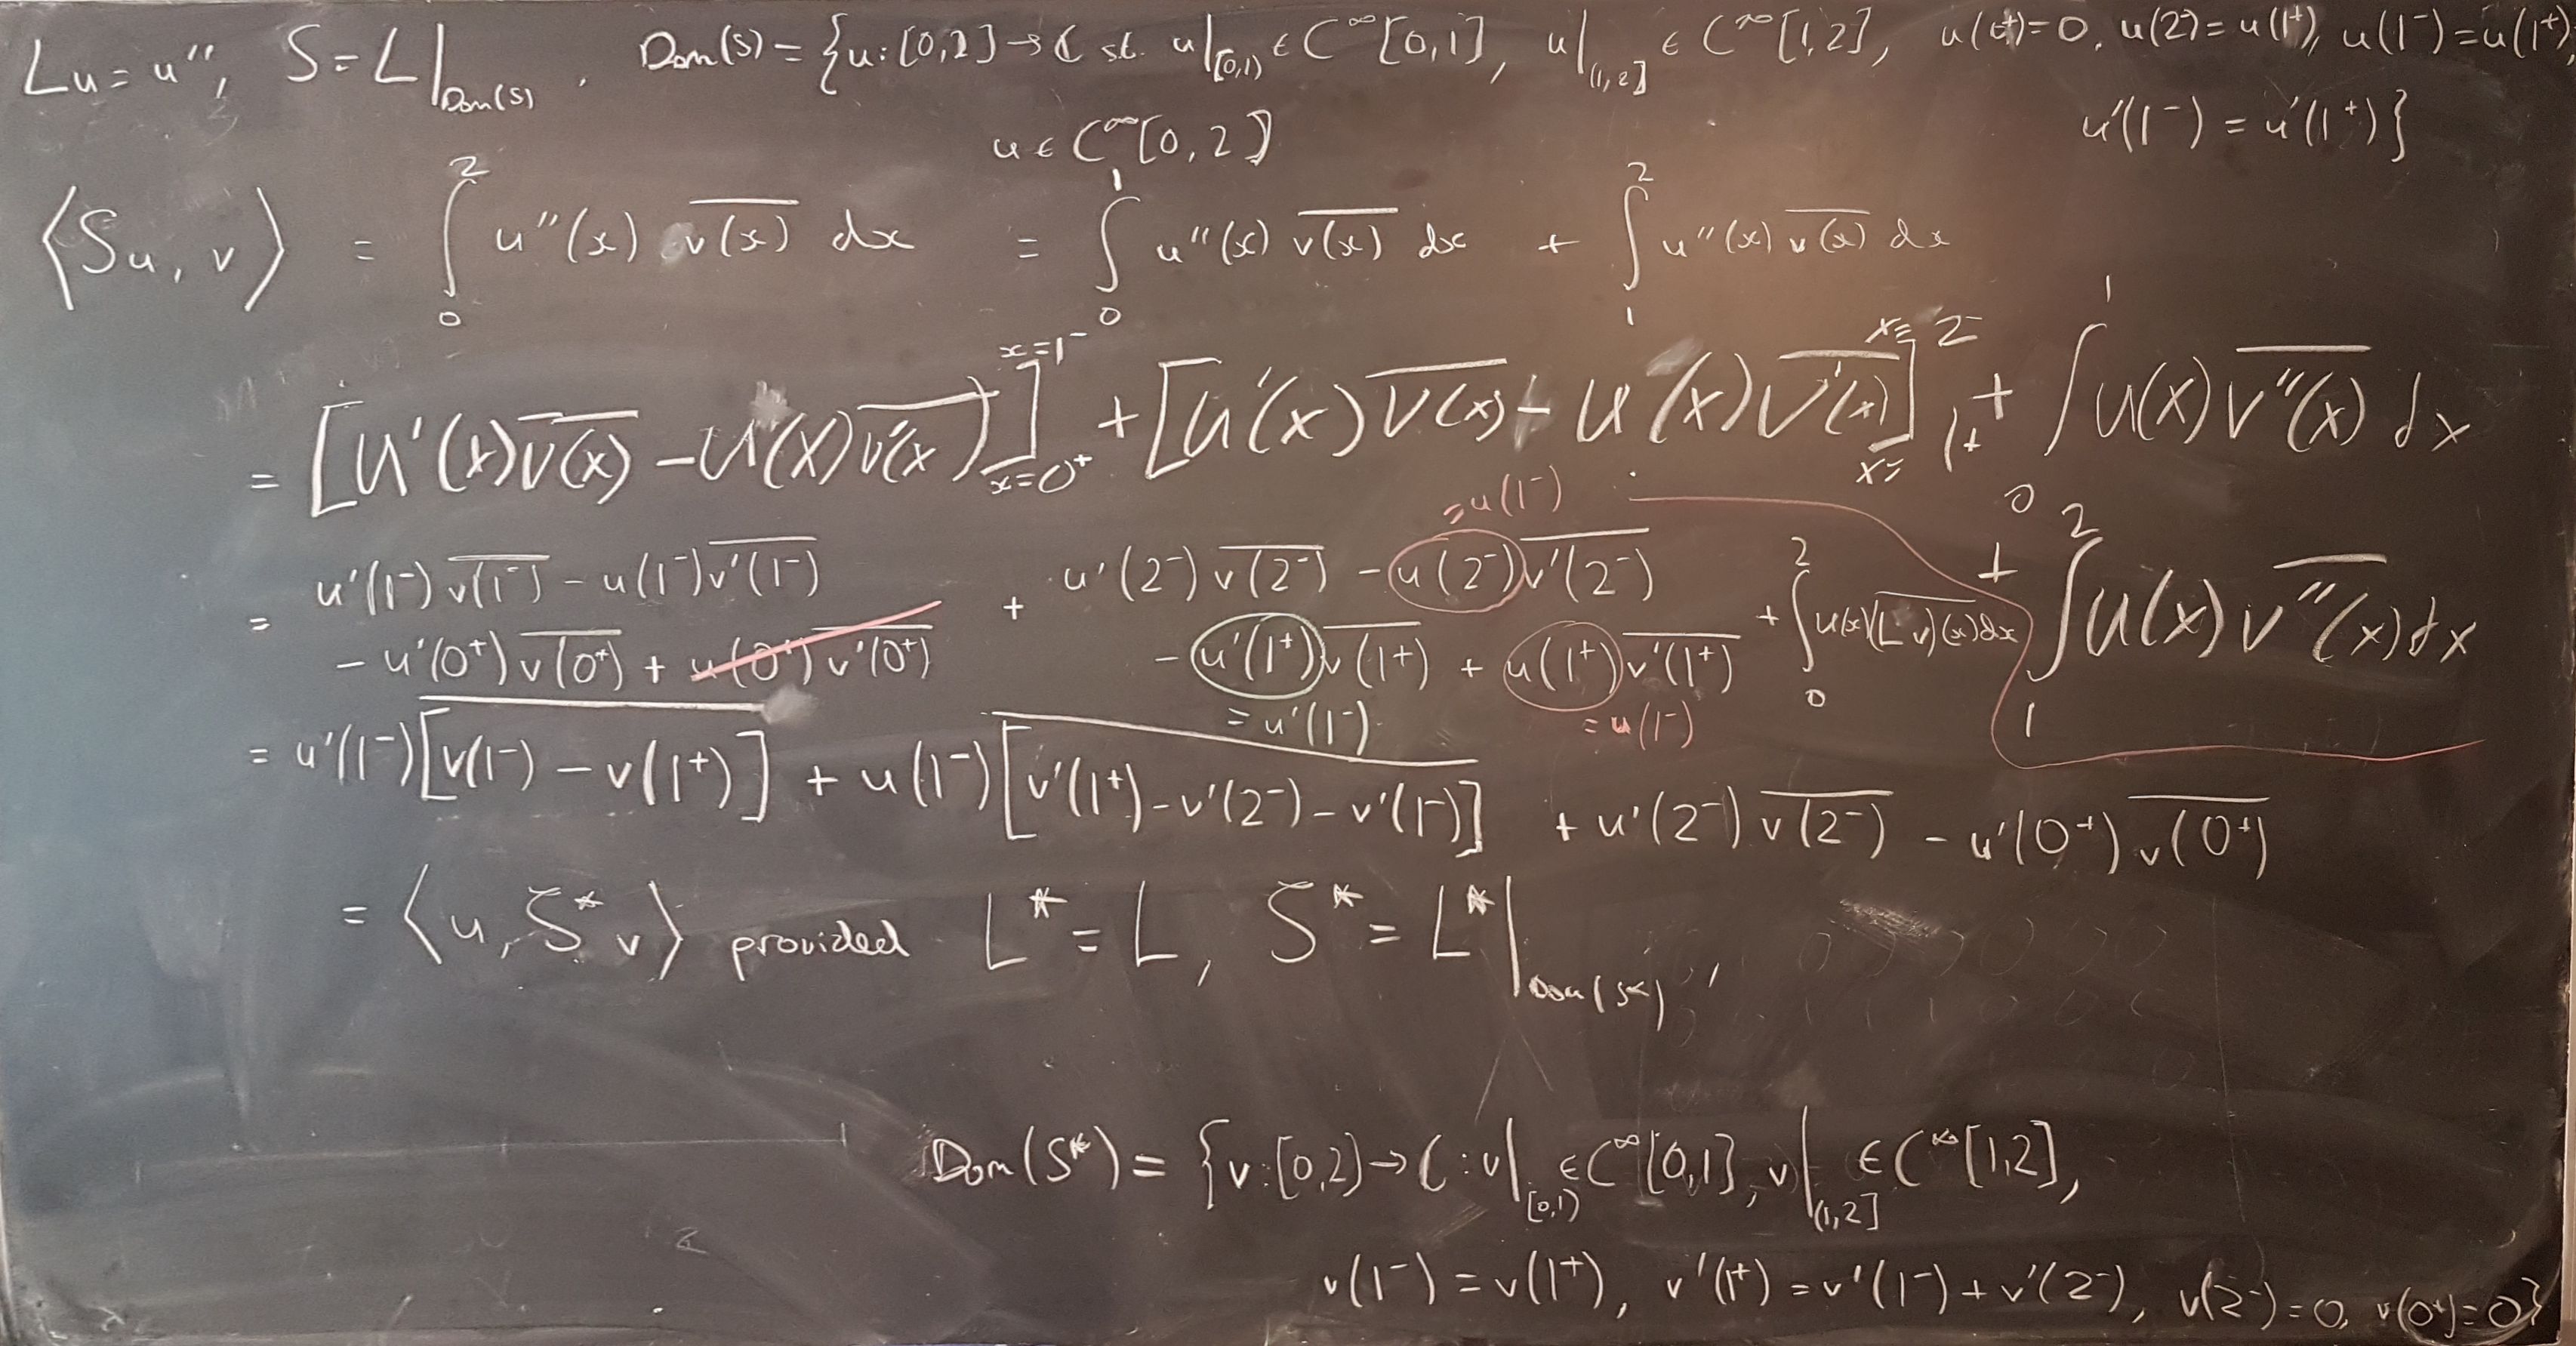 Lu = u'', S = L|_{Dom(S)}, Dom(S) = {u: [0,2] → ℂ st. u|_{[0,1)} ∈ C^∞[0,1], u|_{(1,2]} ∈ C^∞[1,2], u(0⁺)=0, u(2⁻)=u(1⁺), u(1⁻)=u(1⁺),
u'(1⁻) = u'(1⁺)}
u ∈ C^∞[0,2]
⟨Su, v⟩ = ∫_0^2 u''(x) \overline{v(x)} dx = ∫_0^1 u''(x) \overline{v(x)} dx + ∫_1^2 u''(x) \overline{v(x)} dx
= [u'(x)\overline{v(x)} − u(x)\overline{v'(x)}]_{x=0⁺}^{x=1⁻} + [u'(x)\overline{v(x)} − u(x)\overline{v'(x)}]_{x=1⁺}^{x=2⁻} + ∫_0^1 u(x)\overline{v''(x)} dx
+ ∫_1^2 u(x)\overline{v''(x)} dx
= u(1⁻)
= u'(1⁻)\overline{v(1⁻)} − u(1⁻)\overline{v'(1⁻)} + u'(2⁻)\overline{v(2⁻)} − u(2⁻)\overline{v'(2⁻)}
− u'(0⁺)\overline{v(0⁺)} + u(0⁺)\overline{v'(0⁺)} − u'(1⁺)\overline{v(1⁺)} + u(1⁺)\overline{v'(1⁺)} + ∫_0^2 u(x)\overline{(Lv)(x)}dx
= u'(1⁻) = u(1⁻)
= u'(1⁻)[\overline{v(1⁻) − v(1⁺)}] + u(1⁻)[\overline{v'(1⁺) − v'(2⁻) − v'(1⁻)}] + u'(2⁻)\overline{v(2⁻)} − u'(0⁺)\overline{v(0⁺)}
= ⟨u, S*v⟩ provided L* = L, S* = L*|_{Dom(S*)},
Dom(S*) = {v: [0,2) → ℂ : v|_{[0,1)} ∈ C^∞[0,1], v|_{(1,2]} ∈ C^∞[1,2],
v(1⁻) = v(1⁺), v'(1⁺) = v'(1⁻) + v'(2⁻), v(2⁻)=0, v(0⁺)=0}